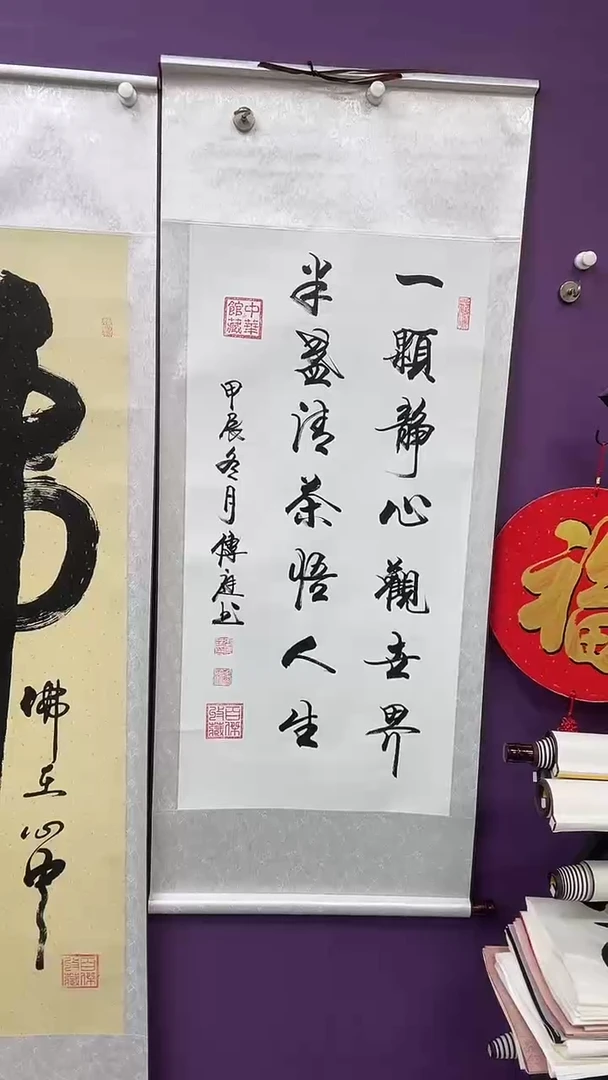 一顆靜心觀世界
半盞清茶悟人生
甲辰冬月傅庭书
中華館藏
百傑收藏
佛在心中
百傑收藏
福